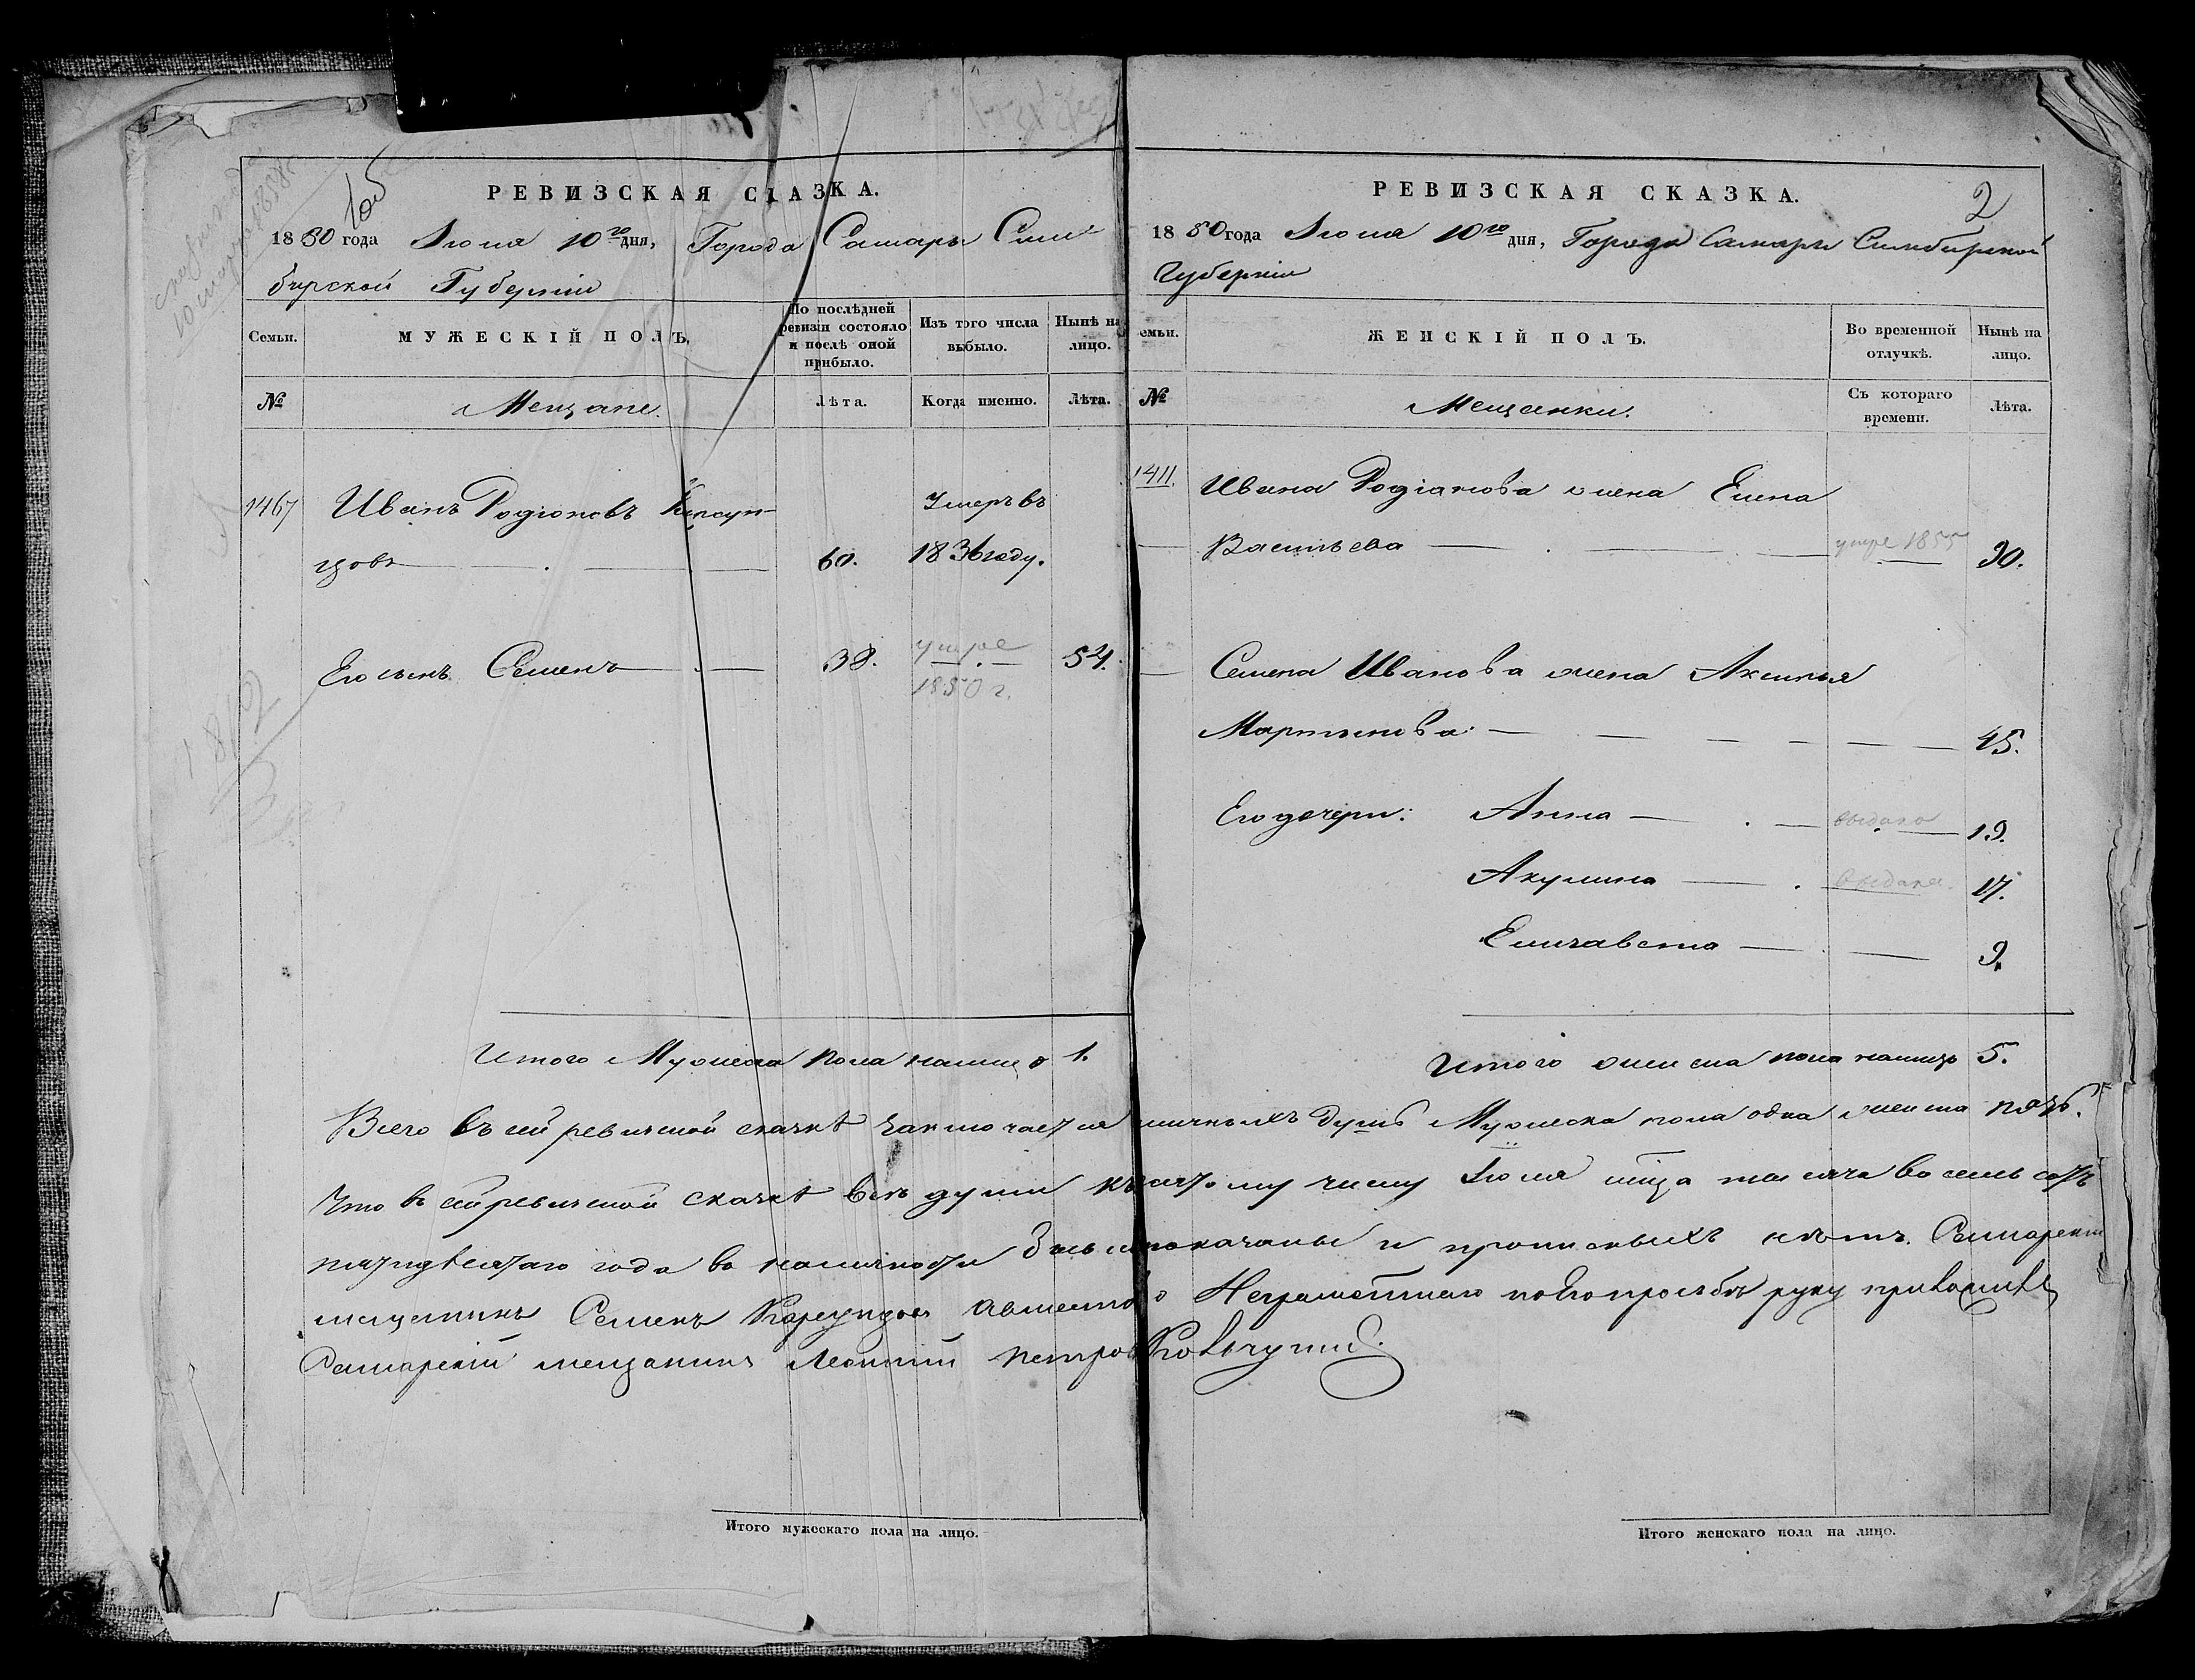 РЕВИЗСКАЯ СКАЗКА.
1850 года Іюля 10го дня, Города Самары Сим-
бирской Губерніи
Семьи.
МУЖЕСКІЙ ПОЛЪ.
По послѣдней ревизіи состояло и послѣ оной прибыло.
Изъ того числа выбыло.
Нынѣ на лицо.
№
Мещане.
Лѣта.
Когда именно.
Лѣта.
1467 Иванъ Родіоновъ Карсун- Умеръ въ
цовъ 60. 1836 году.
Его сынъ Семенъ 38. умре 54.
1850 г.
Итого Мужеска пола налицо 1.
РЕВИЗСКАЯ СКАЗКА.
2
1850 года Іюля 10го дня, Города Самары Симбирской
Губерніи
Семьи.
ЖЕНСКІЙ ПОЛЪ.
Во временной отлучкѣ.
Нынѣ на лицо.
№
Мещанки.
Съ котораго времени.
Лѣта.
1411. Ивана Родіонова жена Елена
Васильева умре 1855 30.
Семена Иванова жена Аксинья
Мартынова: 45.
Его дочери: Анна выдана 19.
Акулина выдана. 17.
Елизавета 9.
Итого женска пола налицо 5.
Всего въ сей ревизской сказкѣ заключается личныхъ душъ Мужеска пола одна женска пять.
Что въ сей ревизской сказкѣ всѣ души къ десятому числу Іюля мѣсяца тысяча восемь сотъ
пятидесятаго года въ наличности были показаны и прописныхъ нѣтъ. Самарскій
мещанинъ Семенъ Карсунцовъ а вместо его Неграмотнаго по его прозьбѣ руку приложилъ
Самарскій мещанинъ Леонтій Петровъ
Итого мужескаго пола на лицо.
Итого женскаго пола на лицо.